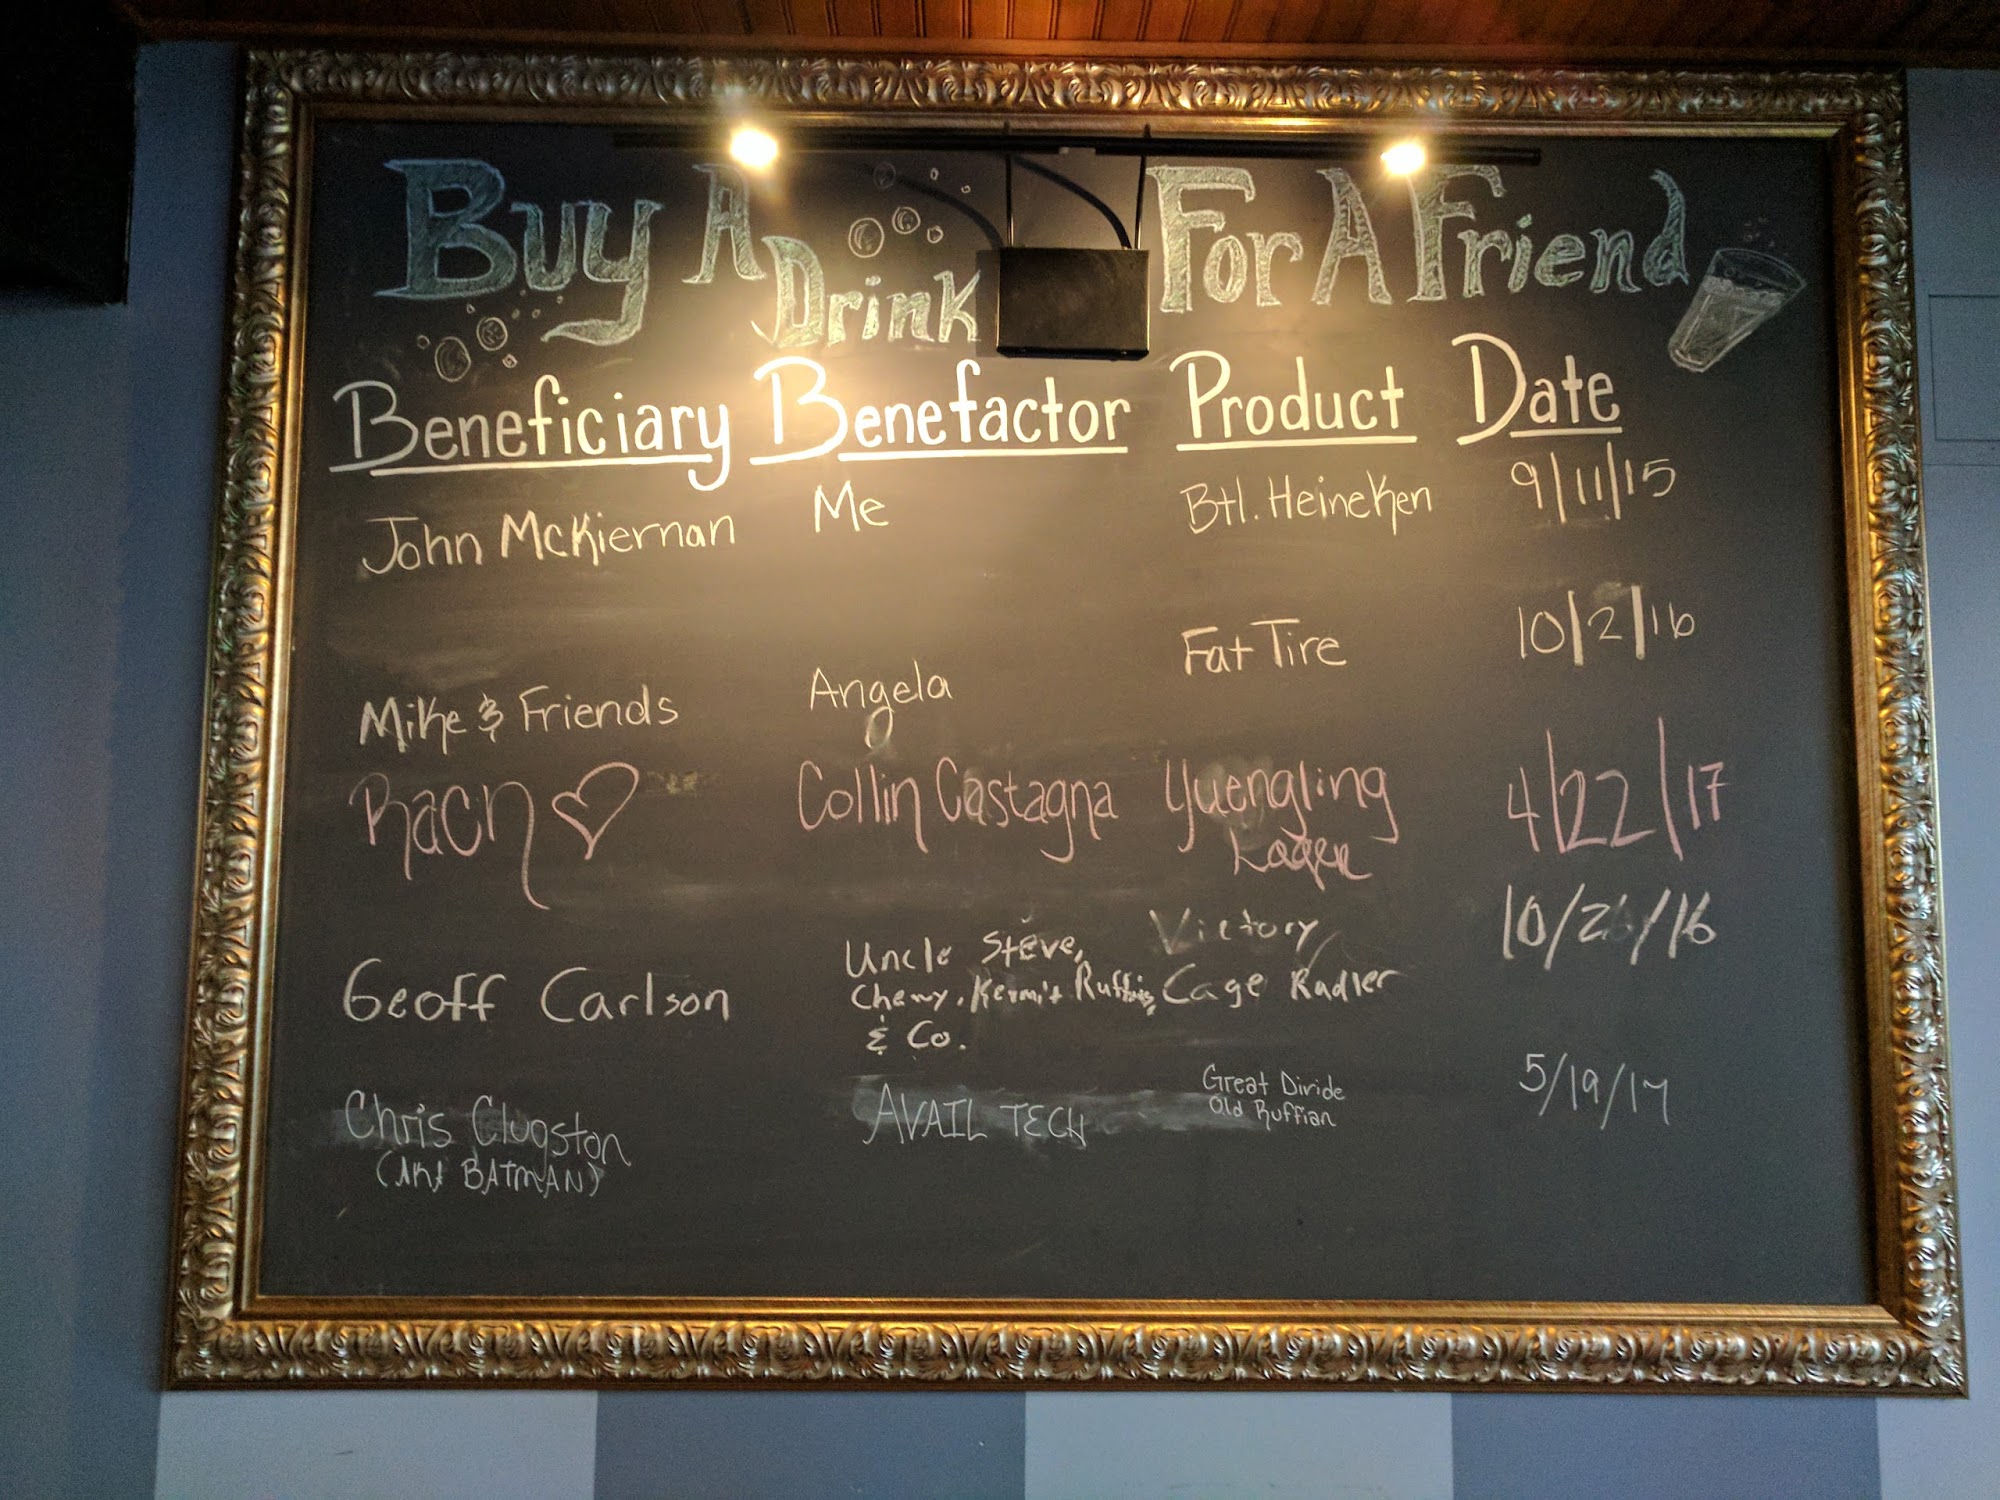 Buy A Drink For A Friend
Beneficiary Benefactor Product Date
John McKiernan Me Btl. Heineken 9/11/15
Mike & Friends Angela Fat Tire 10/2/16
Rach Collin Castagna Yuengling 4/22/17
Lager
Geoff Carlson Uncle Steve, Victory 10/26/16
Chewy, Kermit Cage Radler
& Co.
Chris Clugston AVAIL TECH Great Divide 5/19/17
Old Ruffian
(AKA BATMAN)